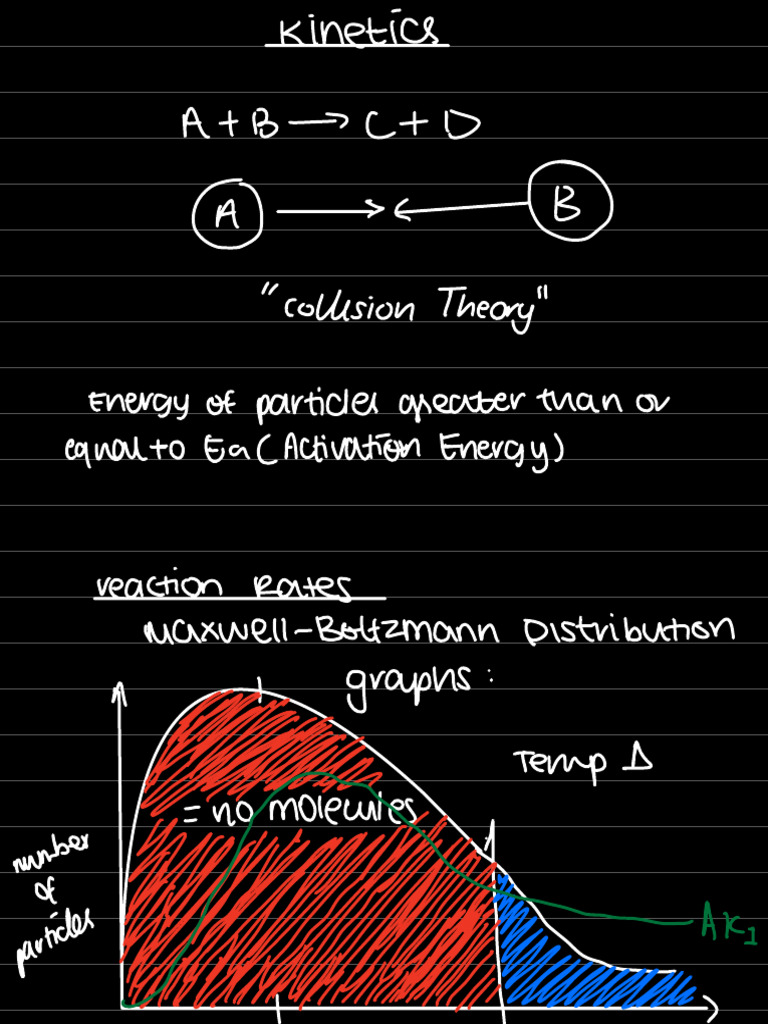 Kinetics
A + B → C + D
A → ← B
"Collision Theory"
Energy of particles greater than or
equal to Ea (Activation Energy)
reaction Rates
Maxwell-Boltzmann Distribution
graphs:
Temp Δ
= no molecules
number
of
particles